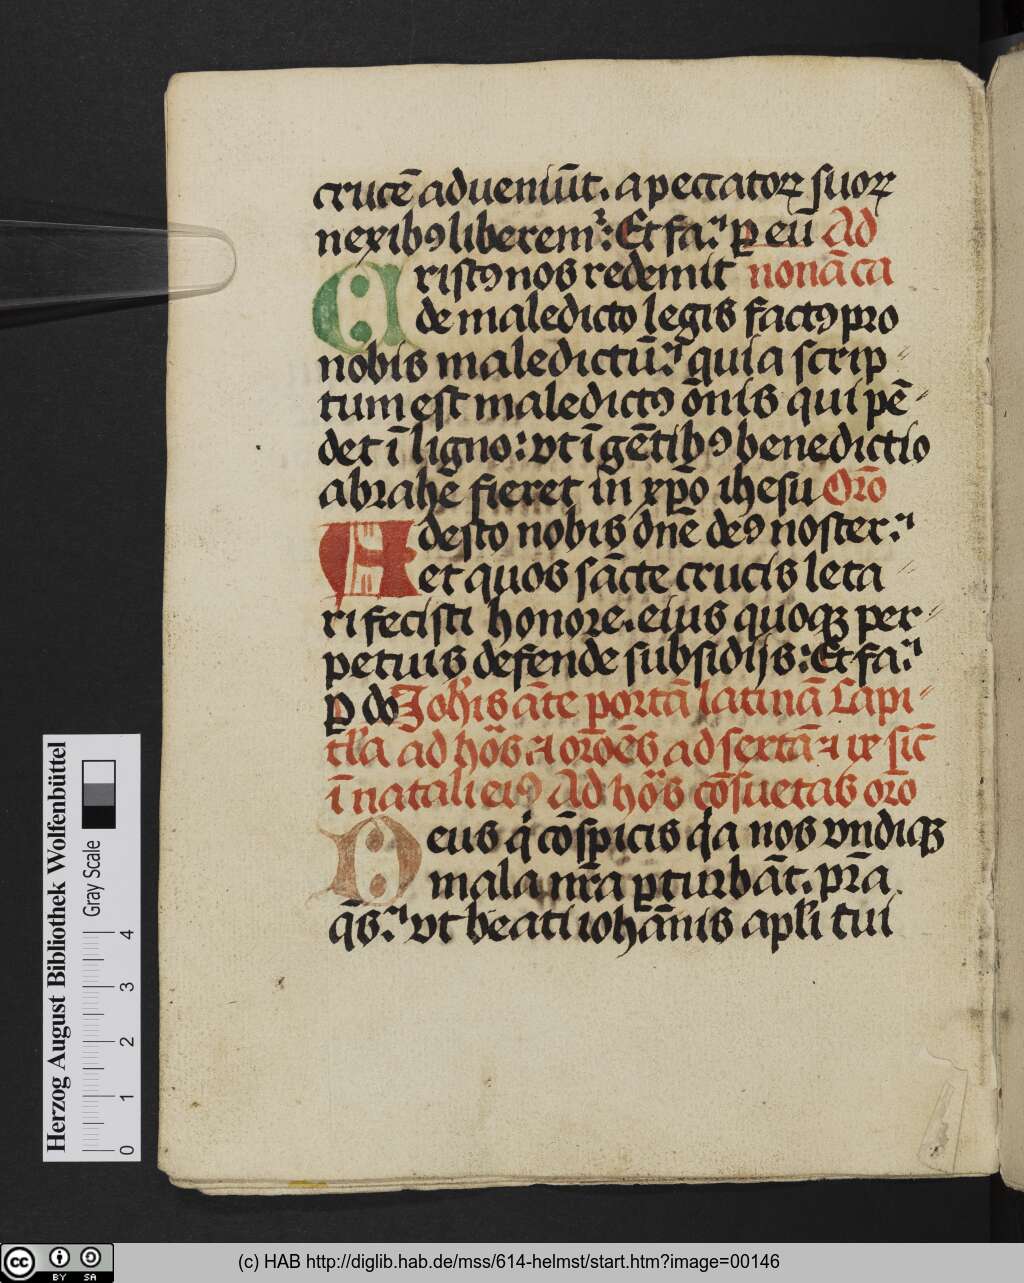 crucē adueniūt. a peccatorꝝ suoꝝ
nexibꝰ liberemr᷑: Et fa. ꝑ eū Ad
ristꝰ nos redemit nonā ca
de maledicto legis factꝰ pro
nobis maledictū. quia scrip
tum est maledictꝰ ōnis qui pē-
det ī ligno: vt ī gētibꝰ benedictio
abrahe fieret in xp̄o ihesu Orō
Adesto nobis dn̄e deꝰ noster:
et quos sācte crucis leta
ri fecisti honore. eius quoqꝫ per
petuis defende subsidijs: Et fa.
ꝑ do Joh̄is āte portā latinā Capi-
tl̄a ad hōs et orōēs ad sextā et ix sic̄
ī natali eiꝰ Ad hōs cōsuetas orō
Deus q̇ cōspicis qa nos vndiqꝫ
mala nr̄a ꝑturbāt. pr̄a
q̄s. vt beati iohānis apl̄i tui
Herzog August Bibliothek Wolfenbüttel
Gray Scale
0 1 2 3 4
cc BY SA
(c) HAB http://diglib.hab.de/mss/614-helmst/start.htm?image=00146